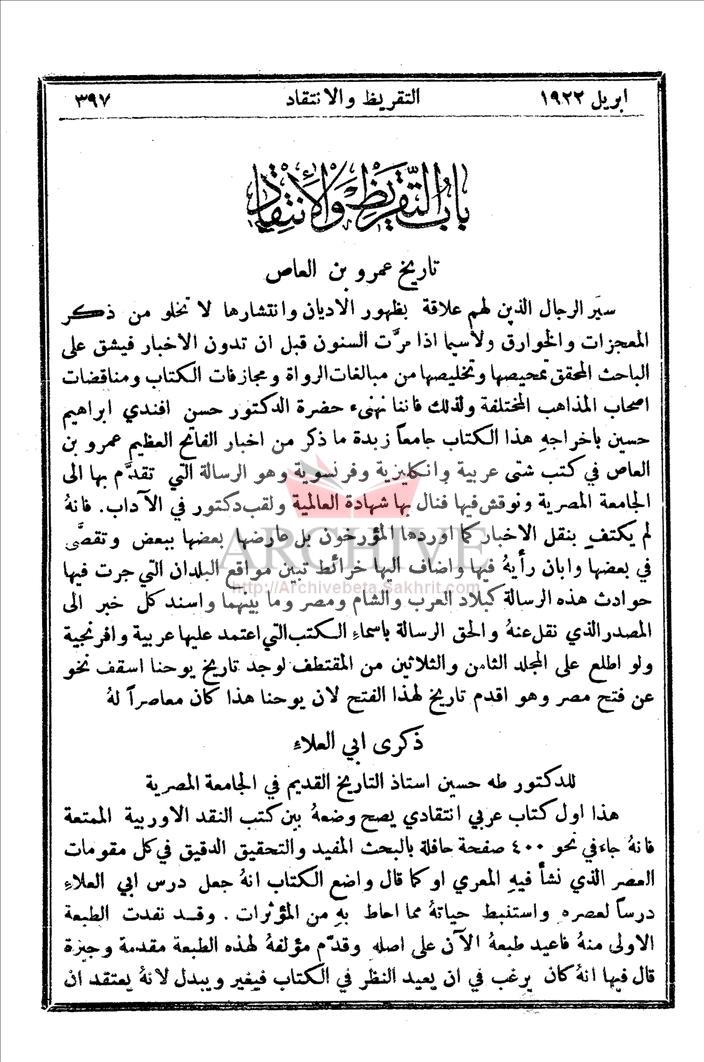 ابريل ١٩٢٢ التقريظ والانتقاد ٣٩٧
باب التقريظ والانتقاد
تاريخ عمرو بن العاص
سيَر الرجال الذين لهم علاقة بظهور الاديان وانتشارها لا تخلو من ذكر
المعجزات والخوارق ولاسيما اذا مرَّت السنون قبل ان تدون الاخبار فيشق على
الباحث المحقق تمحيصها وتخليصها من مبالغات الرواة ومجازفات الكتاب ومناقضات
اصحاب المذاهب المختلفة ولذلك فاننا نهنىء حضرة الدكتور حسن افندي ابراهيم
حسين باخراجهِ هذا الكتاب جامعاً زبدة ما ذكر من اخبار الفاتح العظيم عمرو بن
العاص في كتب شتى عربية وانكليزية وفرنسوية وهو الرسالة التي تقدَّم بها الى
الجامعة المصرية ونوقش فيها فنال بها شهادة العالمية ولقب دكتور في الآداب. فانهُ
لم يكتفِ بنقل الاخبار كما اوردها المؤرخون بل عارضها بعضها ببعض وتقصَّى
ARCHIVE
في بعضها وابان رأيهُ فيها واضاف اليها خرائط تبين مواقع البلدان التي جرت فيها
http://Archivebeta.Sakhrit.com
حوادث هذه الرسالة كبلاد العرب والشام ومصر وما بينهما واسند كل خبر الى
المصدر الذي نقل عنهُ والحق الرسالة باسماءِ الكتب التي اعتمد عليها عربية وافرنجية
ولو اطلع على المجلد الثامن والثلاثين من المقتطف لوجد تاريخ يوحنا اسقف نحو
عن فتح مصر وهو اقدم تاريخ لهذا الفتح لان يوحنا هذا كان معاصراً لهُ
ذكرى ابي العلاء
للدكتور طه حسين استاذ التاريخ القديم في الجامعة المصرية
هذا اول كتاب عربي انتقادي يصح وضعهُ بين كتب النقد الاوربية الممتعة
فانهُ جاء في نحو ٤٠٠ صفحة حافلة بالبحث المفيد والتحقيق الدقيق في كل مقومات
العصر الذي نشأ فيهِ المعري او كما قال واضع الكتاب انهُ جعل درس ابي العلاءِ
درساً لعصره واستنبط حياتهُ مما احاط بهِ من المؤثرات. وقد نفدت الطبعة
الاولى منهُ فاعيد طبعهُ الآن على اصلهِ وقدَّم مؤلفهُ لهذه الطبعة مقدمة وجيزة
قال فيها انهُ كان يرغب في ان يعيد النظر في الكتاب فيغير ويبدل لانهُ يعتقد ان